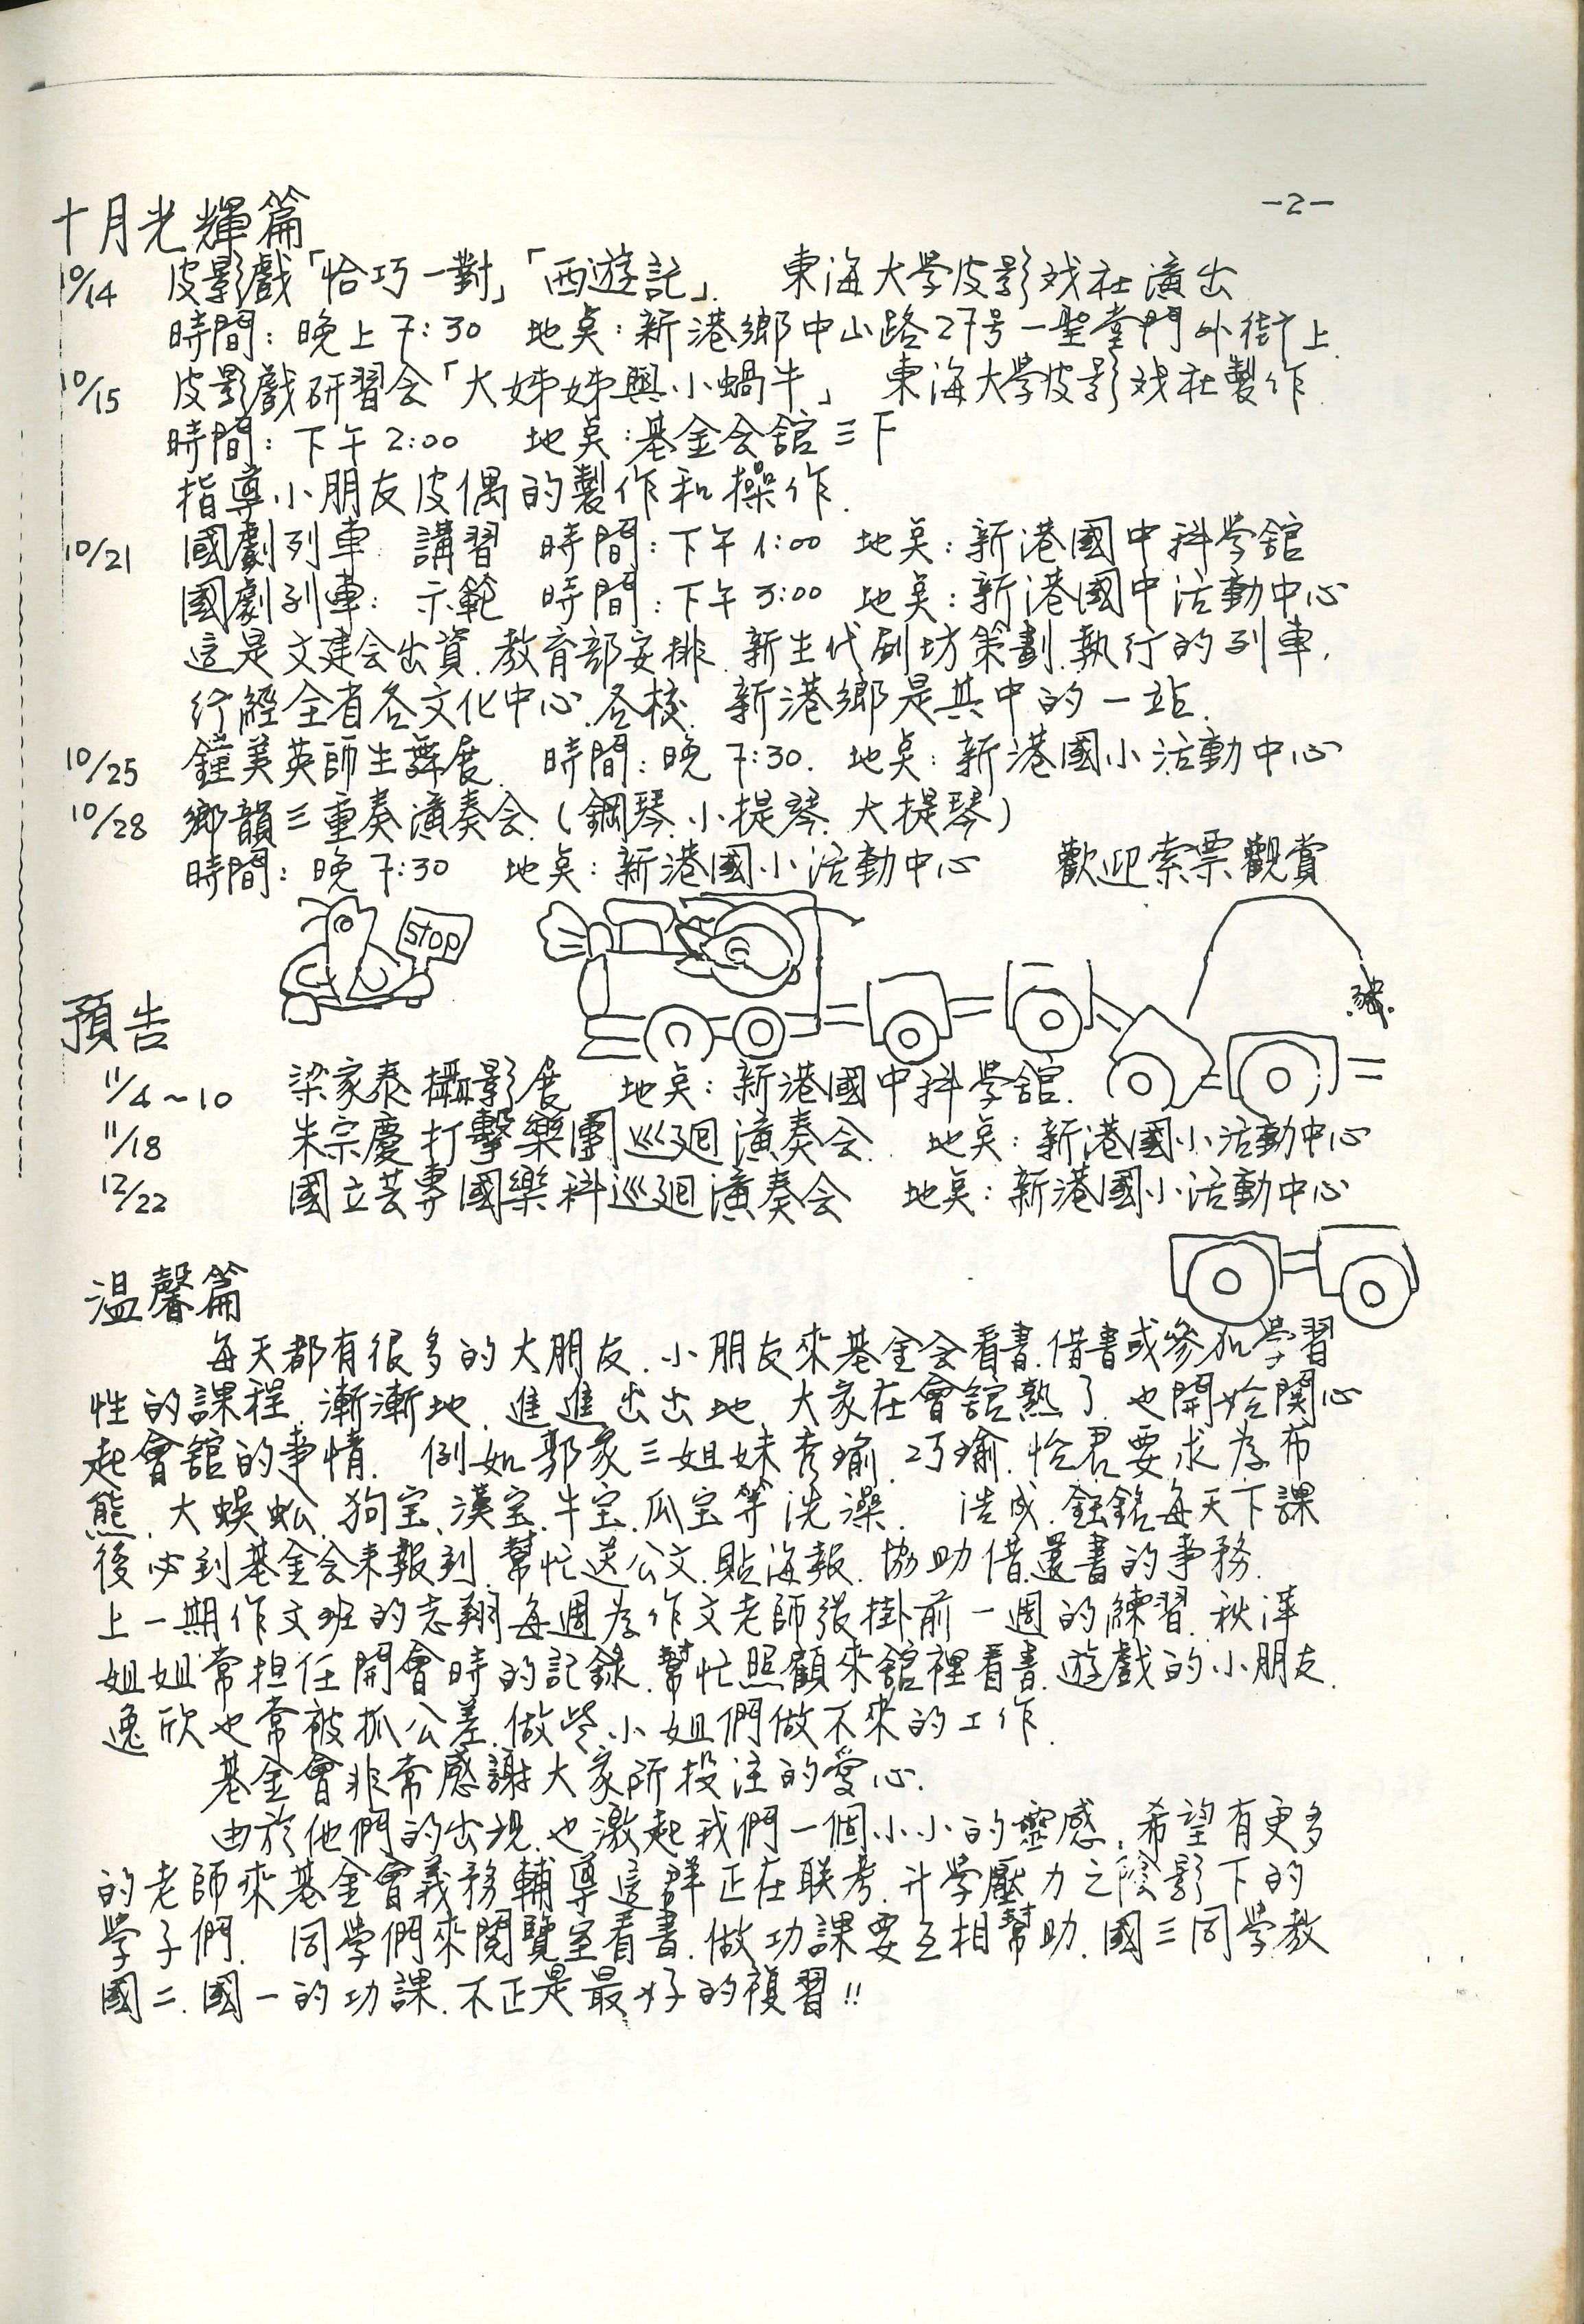 -2-
十月光輝篇
10/14 皮影戲「恰巧一對」「西遊記」. 東海大学皮影戏社演出
時間：晚上7:30 地奌：新港鄉中山路27号—聖堂門外街上.
10/15 皮影戲研習会「大姊姊與小蝸牛」 東海大學皮影戏社製作.
時間：下午2:00 地奌：基金会舘三下
指導小朋友皮偶的製作和操作.
10/21 國劇列車: 講習 時間：下午1:00 地奌：新港國中科学舘
國劇列車: 示範 時間：下午3:00 地奌：新港國中活動中心
這是文建会出資.教育部安排.新生代劇坊策劃.執行的列車,
行經全省各文化中心.各校. 新港鄉是其中的一站.
10/25 鐘美英師生舞展. 時間：晚7:30. 地奌：新港國小活動中心
10/28 鄉韻三重奏演奏会.(鋼琴.小提琴.大提琴)
時間：晚7:30 地奌：新港國小活動中心 歡迎索票觀賞
STOP
預告
11/4~10 梁家泰攝影展 地奌：新港國中科学舘.
11/18 朱宗慶打擊樂團巡廻演奏会. 地奌：新港國小活動中心
12/22 國立芸專國樂科巡廻演奏会 地奌：新港國小活動中心
溫馨篇
每天都有很多的大朋友.小朋友來基金会看書.借書或參加学習
性的課程.漸漸地.進進出出地.大家在會舘熟了.也開始関心
起會舘的事情. 例如郭家三姐妹秀瑜.巧瑜.怡君要求為布
熊.大蜈蚣.狗宝.漢宝.牛宝.瓜宝等洗澡. 浩成.鈺銘每天下課
後必到基金会來報到.幫忙送公文.貼海報.協助借還書的事務.
上一期作文班的志翔每週為作文老師張掛前一週的練習.秋萍
姐姐常担任開會時的記錄.幫忙照顧來舘裡看書.遊戲的小朋友.
逸欣也常被抓公差.做些小姐們做不來的工作.
基金會非常感謝大家所投注的愛心.
由於他們的出現.也激起我們一個小小的靈感.希望有更多
的老師來基金會義務輔導這群正在联考.升学壓力之陰影下的
学子們. 同学們來閱覽室看書.做功課要互相幫助.國三同学教
國二.國一的功課.不正是最好的複習!!